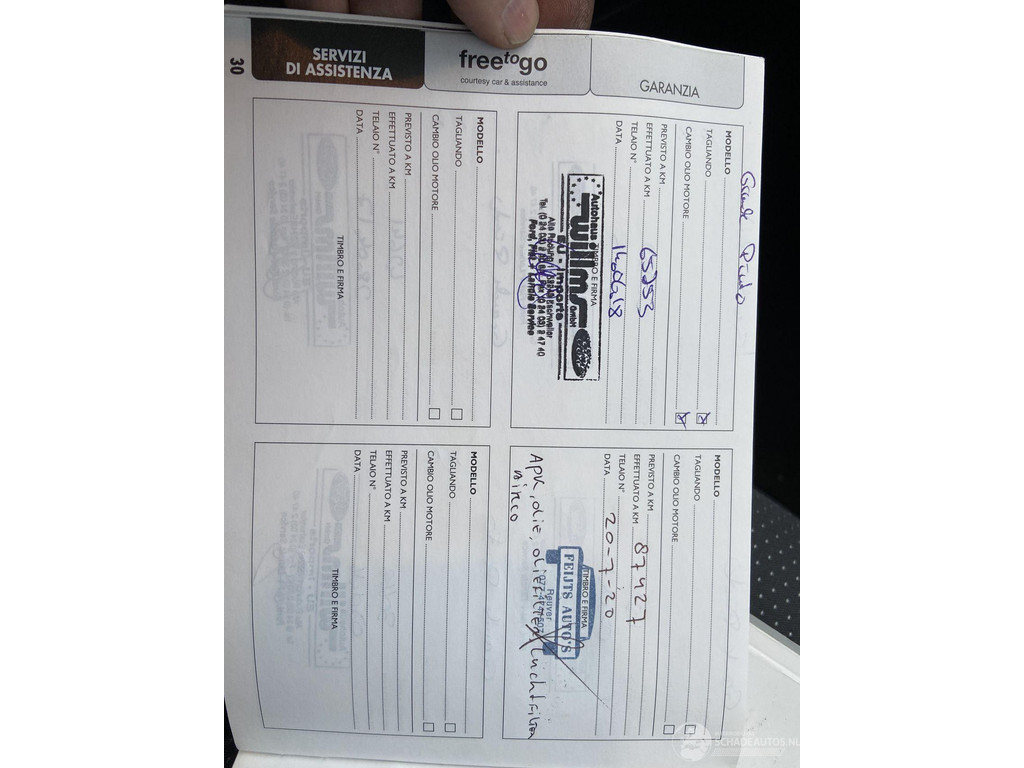 30
SERVIZI
DI ASSISTENZA
freetogo
courtesy car & assistance
GARANZIA
MODELLO Grande Punto
TAGLIANDO
CAMBIO OLIO MOTORE
PREVISTO A KM
EFFETTUATO A KM 65253
TELAIO N°
DATA
TIMBRO E FIRMA
Autohaus
willms
GmbH
EU - Importe
Ford, Fiat + Lancia Service
MODELLO
TAGLIANDO
CAMBIO OLIO MOTORE
PREVISTO A KM
EFFETTUATO A KM 87427
TELAIO N°
DATA 20-7-20
TIMBRO E FIRMA
FEIJTS AUTO'S
Reuver
APK, olie, oliefilter, luchtfilter
MODELLO
TAGLIANDO
CAMBIO OLIO MOTORE
PREVISTO A KM
EFFETTUATO A KM
TELAIO N°
DATA
TIMBRO E FIRMA
MODELLO
TAGLIANDO
CAMBIO OLIO MOTORE
PREVISTO A KM
EFFETTUATO A KM
TELAIO N°
DATA
TIMBRO E FIRMA
SCHADEAUTOS.NL